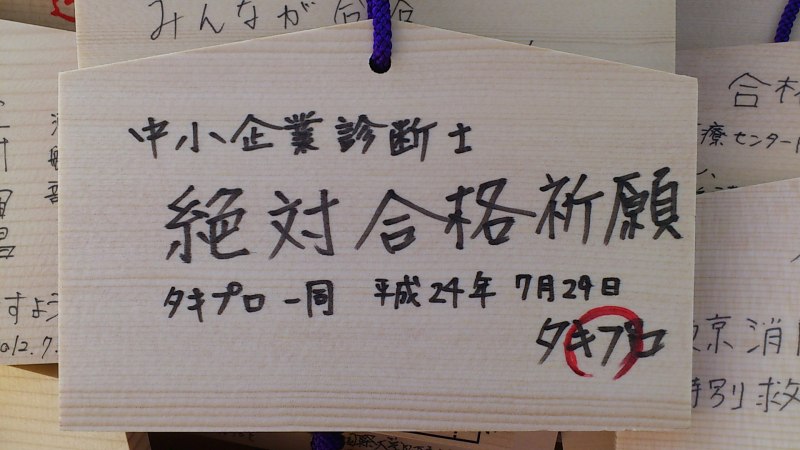 みんなが合合
中小企業診断士
絶対合格祈願
タキプロ一同 平成24年 7月29日
タキプロ
合格
療センター
すよう
012.7.
京消
特別救